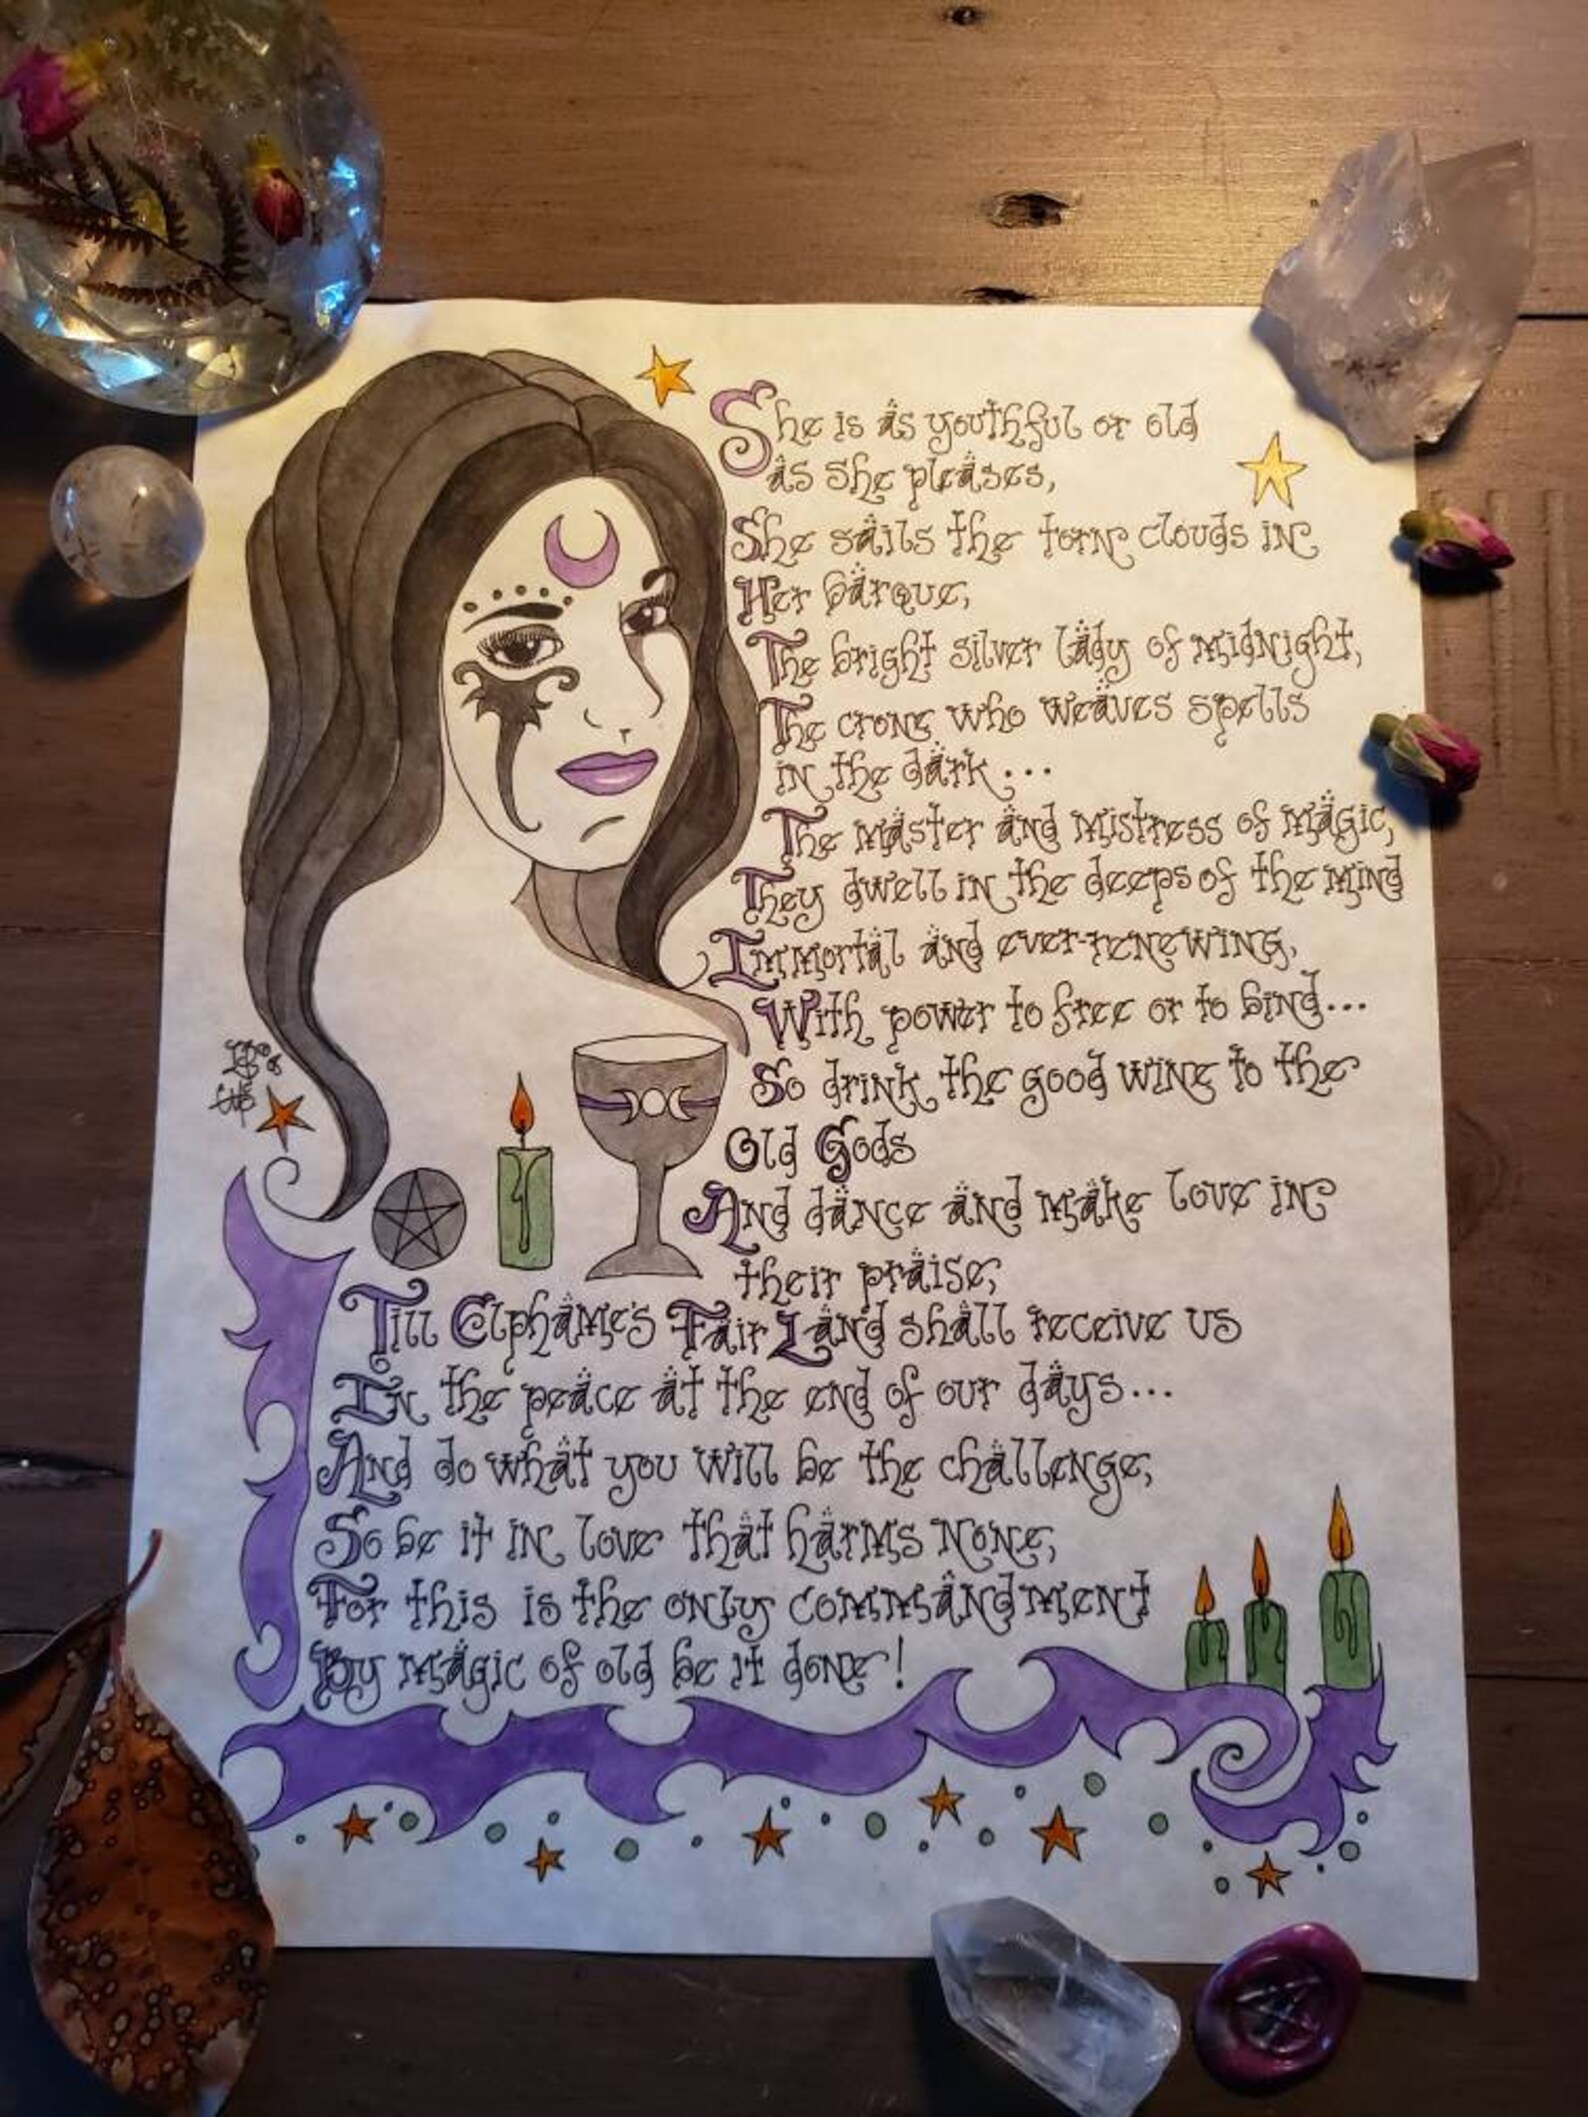 She is as youthful or old
as she pleases,
She sails the torn clouds in
Her barque,
The bright silver lady of midnight,
The crone who weaves spells
in the dark...
The master and mistress of magic,
They dwell in the deeps of the mind
Immortal and ever-renewing,
With power to free or to bind...
So drink the good wine to the
Old Gods
And dance and make love in
their praise,
Till Elphame's Fair Land shall receive us
In the peace at the end of our days...
And do what you will be the challenge,
So be it in love that harms none,
For this is the only commandment
By magic of old be it done!